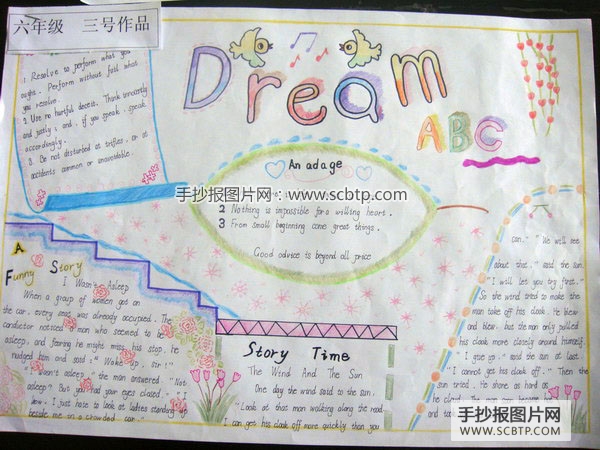 六年级 三号作品
Dream
ABC
1. Resolve to perform what you
ought. Perform without fail what
you resolve.
2. Use no hurtful deceit. Think innocently
and justly, and, if you speak, speak
accordingly.
3. Be not disturbed at trifles, or at
accidents common or unavoidable.
An adage
手抄报图片网:www.scbtp.com
2 Nothing is impossible for a willing heart.
3 From small beginning come great things.
Good advice is beyond all price
A
Funny Story
I Wasn't Asleep
When a group of women got on
the car, every seat was already occupied. The
conductor noticed a man who seemed to be
asleep, and fearing he might miss his stop, he
nudged him and said: "Wake up, sir!"
"I wasn't asleep," the man answered. "Not
asleep? But you had your eyes closed." "I
know. I just hate to look at ladies standing up
beside me in a crowded car."
Story Time
The Wind And The Sun
One day the wind said to the sun.
"Look at that man walking along the road
I can get his cloak off more quickly than you
can." "We will see
about that." said the sun.
"I will let you try first."
So the wind tried to make the
man take off his cloak. He blew
and blew. but the man only pulled
his cloak more closely around himself.
"I give up." said the sun at last
"I cannot get his cloak off." Then the
sun tried. He shone as hard as
he could. The man soon became hot
and
手抄报图片网
WWW.SCBTP.COM